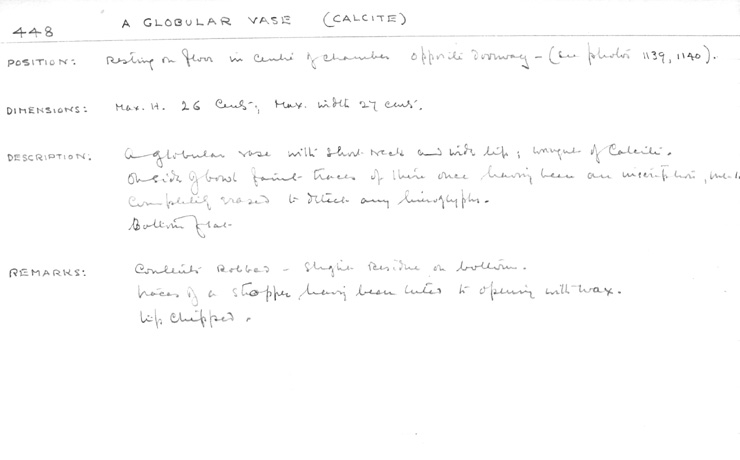 448 A GLOBULAR VASE (CALCITE)
POSITION: Resting on floor in centre of chamber opposite doorway – (see photos 1139, 1140).
DIMENSIONS: Max. H. 26 cents; Max. width 27 cents.
DESCRIPTION: A globular vase with short neck and wide lip; wrought of Calcite.
On side of bowl faint traces of there once having been an inscription,
completely erased to detect any hieroglyphs.
Bottom flat
REMARKS: Contents Robbed – Slight Residue on bottom.
traces of a stopper having been luted to opening with wax.
Lip chipped.